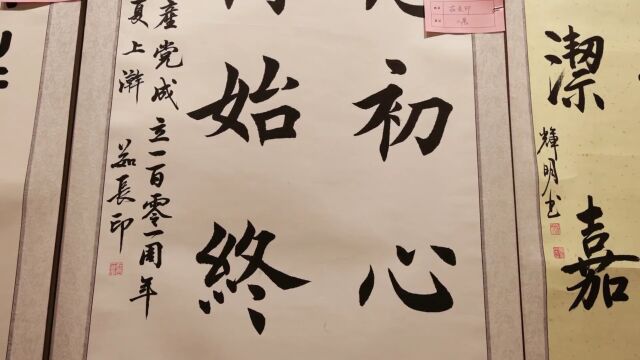 嘉
潔
輝明书
初心
始終
産党成立一百零一周年
夏上澣
茹長印